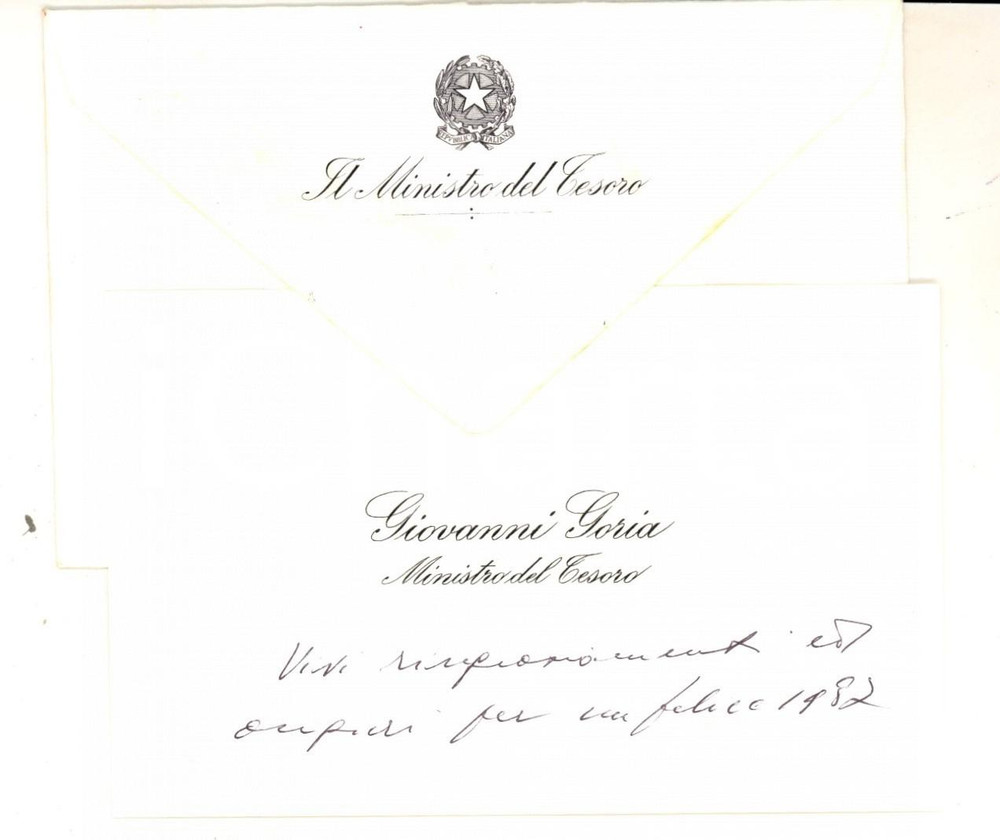 REPVBBLICA ITALIANA
Il Ministro del Tesoro
iCharta
Giovanni Goria
Ministro del Tesoro
Vivi ringraziamenti ed
auguri per un felice 1982